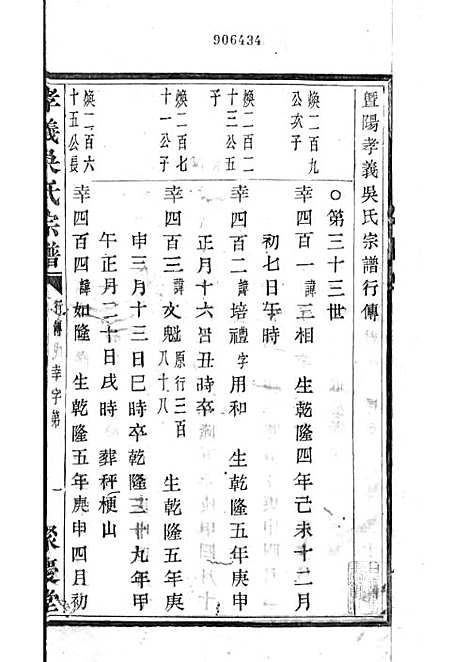 906434
暨陽孝義吳氏宗譜行傳
○第三十三世
煥二百九
公次子
幸四百一諱三相 生乾隆四年己未十二月
初七日午時
煥二百二
十三公五
子
幸四百二諱培禮字用和 生乾隆五年庚申
正月十六日丑時卒
煥二百七
十一公子
幸四百三諱文魁原行三百八十八 生乾隆五年庚
申三月十三日巳時卒乾隆三十九年甲
午正月二十日戌時 葬秤梗山
煥二百六
十五公長
幸四百四諱如隆 生乾隆五年庚申四月初
孝義吳氏宗譜
行傳 幸字第 一
聚慶堂